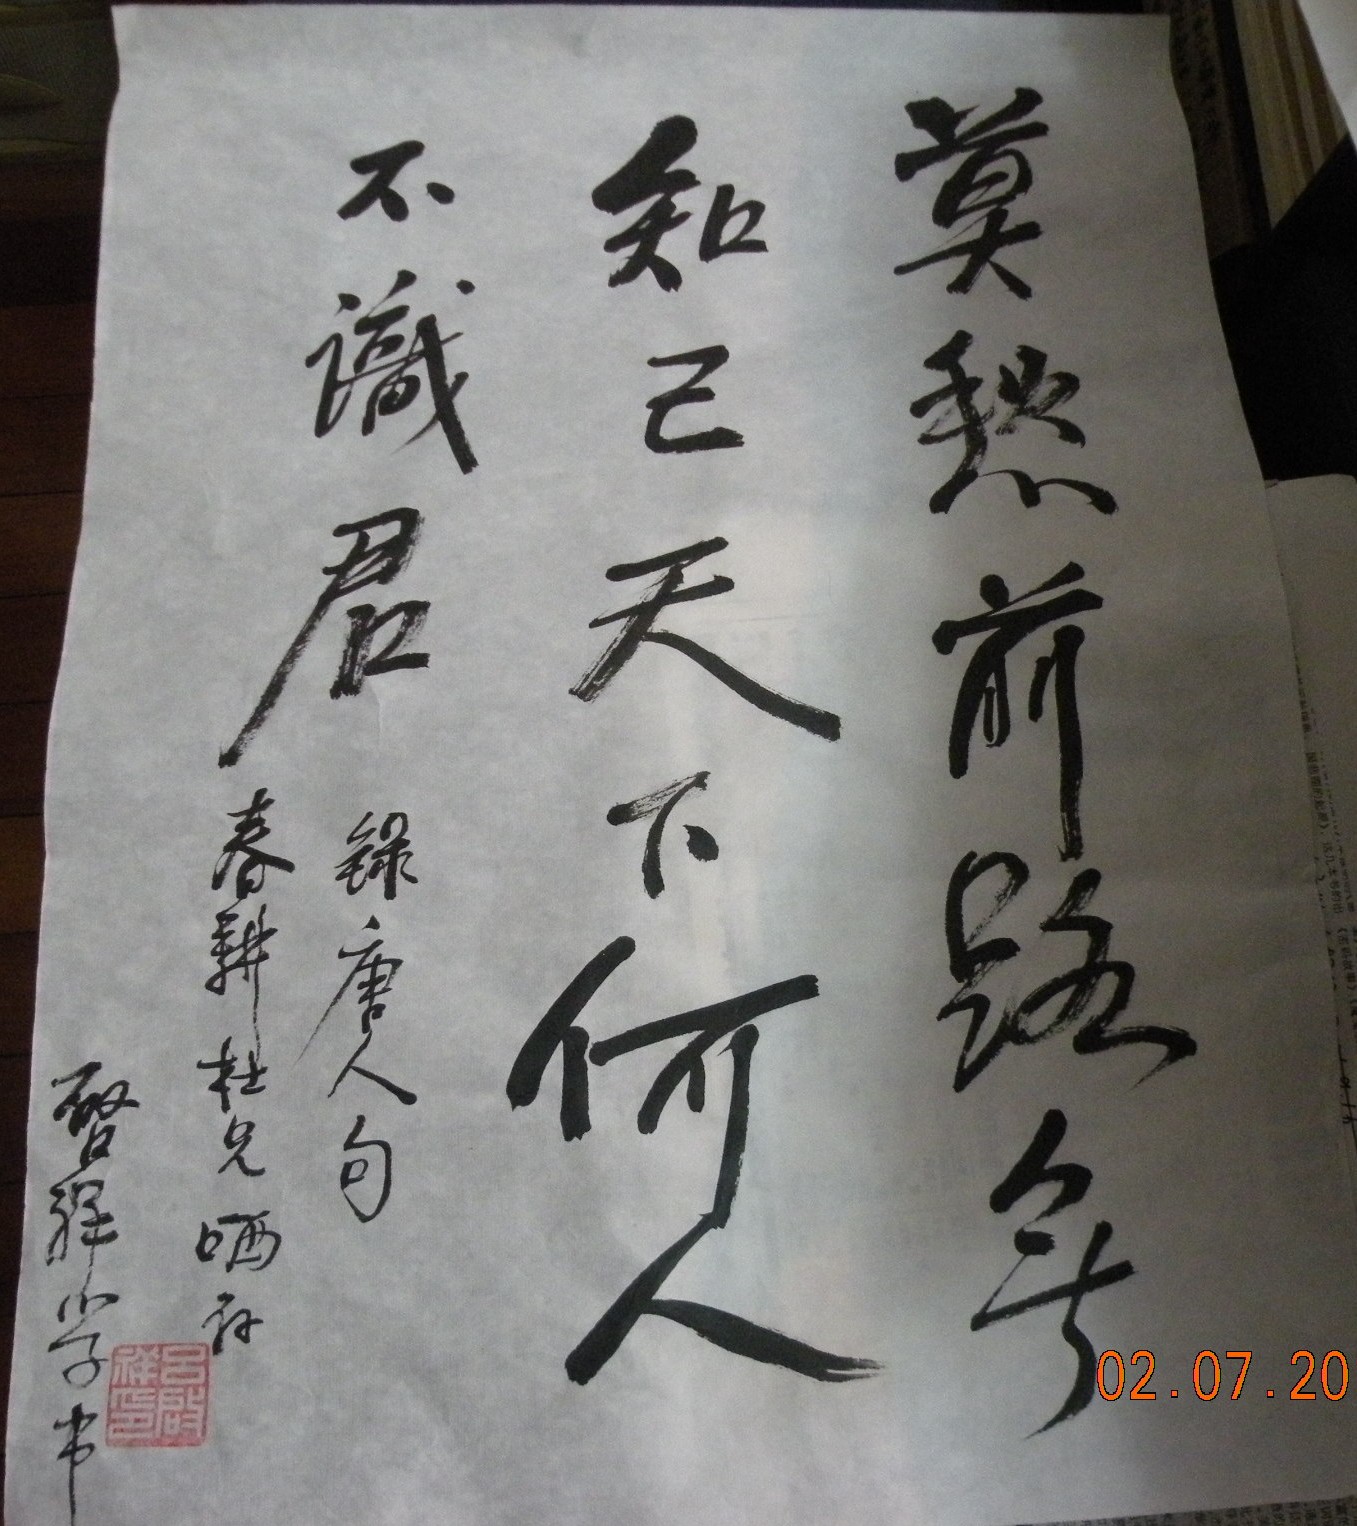 莫愁前路無
知己天下何人
不識君
錄唐人句
春耕杜兄哂
啓祥小子书
吕啟祥印
02.07.20